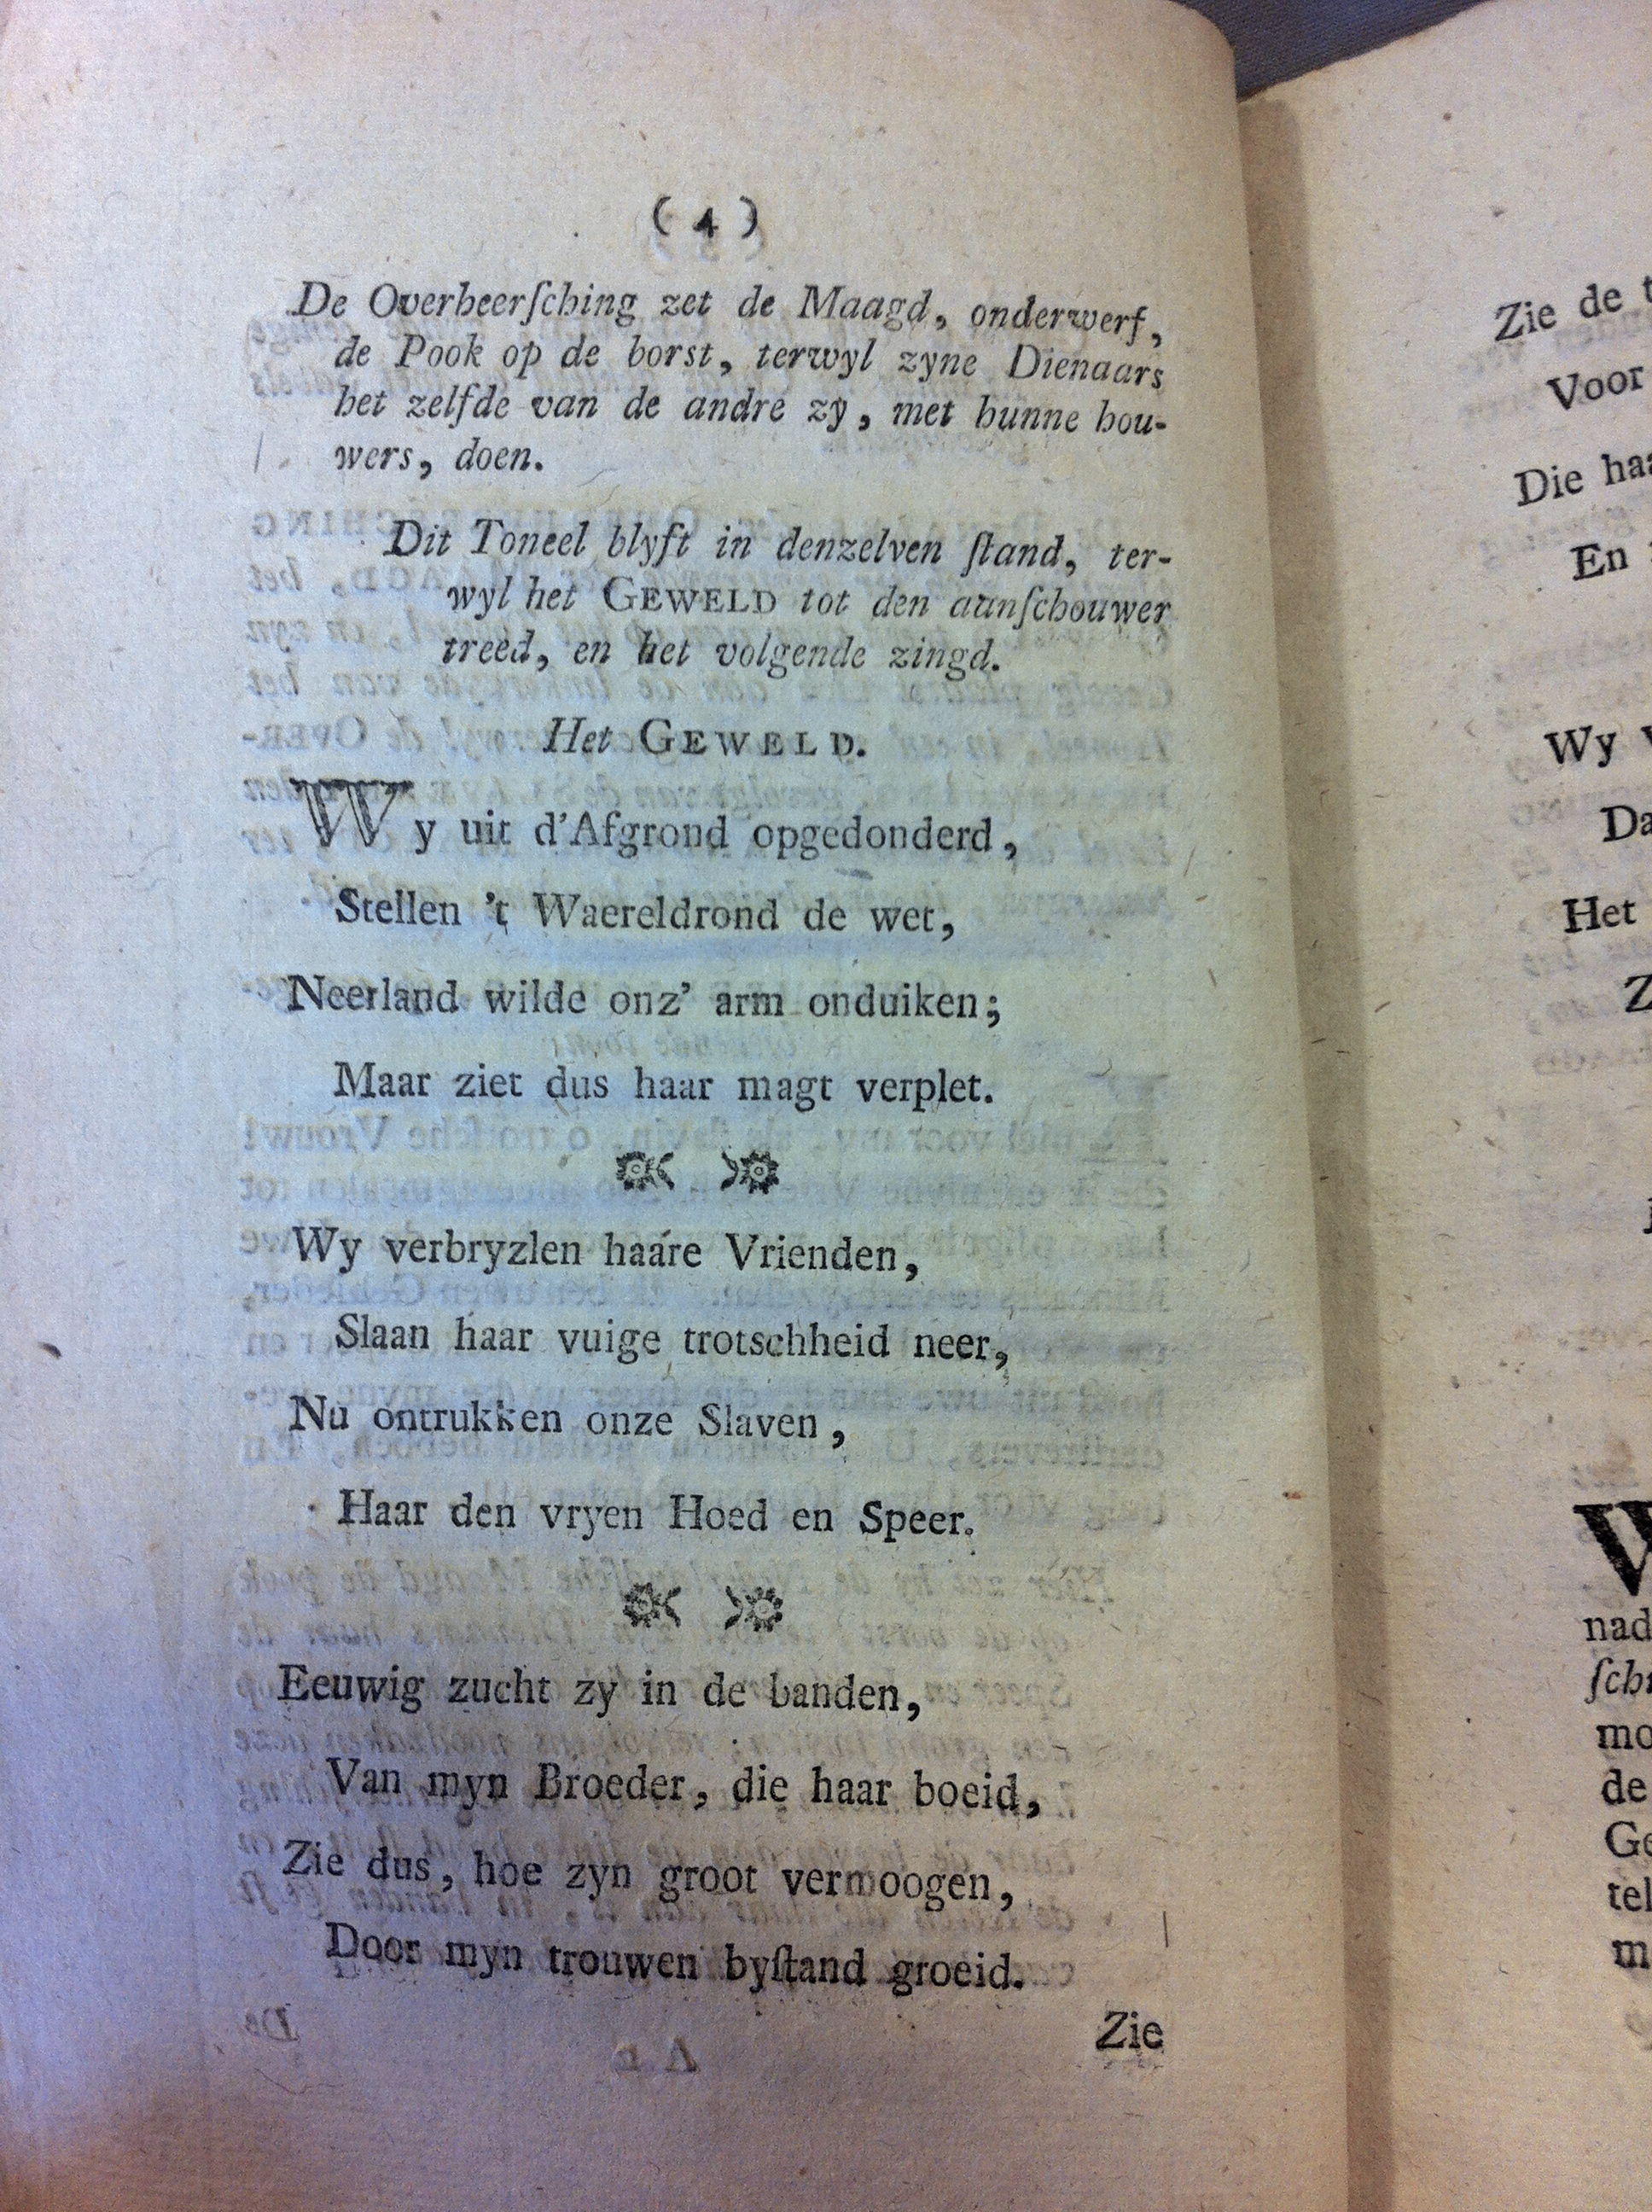 ( 4 )
De Overheerſching zet de Maagd, onderwerf,
de Pook op de borst, terwyl zyne Dienaars
het zelfde van de andre zy, met hunne hou-
wers, doen.
Dit Toneel blyft in denzelven ſtand, ter-
wyl het GEWELD tot den aanſchouwer
treed, en het volgende zingd.
Het GEWELD.
Wy uit d'Afgrond opgedonderd,
Stellen 't Waereldrond de wet,
Neerland wilde onz' arm onduiken;
Maar ziet dus haar magt verplet.
Wy verbryzlen haare Vrienden,
Slaan haar vuige trotschheid neer,
Nu ontrukken onze Slaven,
Haar den vryen Hoed en Speer.
Eeuwig zucht zy in de banden,
Van myn Broeder, die haar boeid,
Zie dus, hoe zyn groot vermoogen,
Door myn trouwen byſtand groeid.
Zie
Zie de
Voor
Die
En
Wy
Het